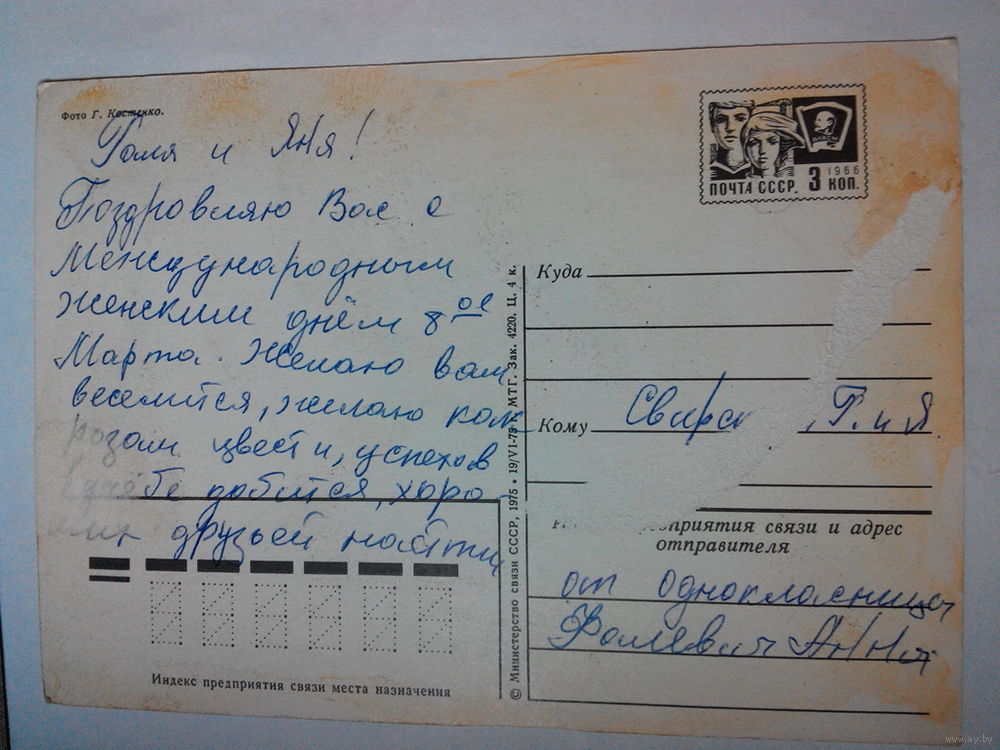 Фото Г. Костенко.
Галя и Яня!
Поздровляю Вас с
Международным
женским днём 8ое
Марта. Желаю вам
веселится, желаю как
розам цвести, успехов
добится, хоро-
друзьей найти
ПОЧТА СССР.
3 КОП.
1966
ВЛКСМ
Куда
Кому
Г. и Я.
предприятия связи и адрес
отправителя
от однокласницы
Фалевич Анна
Индекс предприятия связи места назначения
© Министерство связи СССР, 1975 • 19/VI-75 г. МТГ. Зак. 4220. Ц. 4 к.
www.ay.by